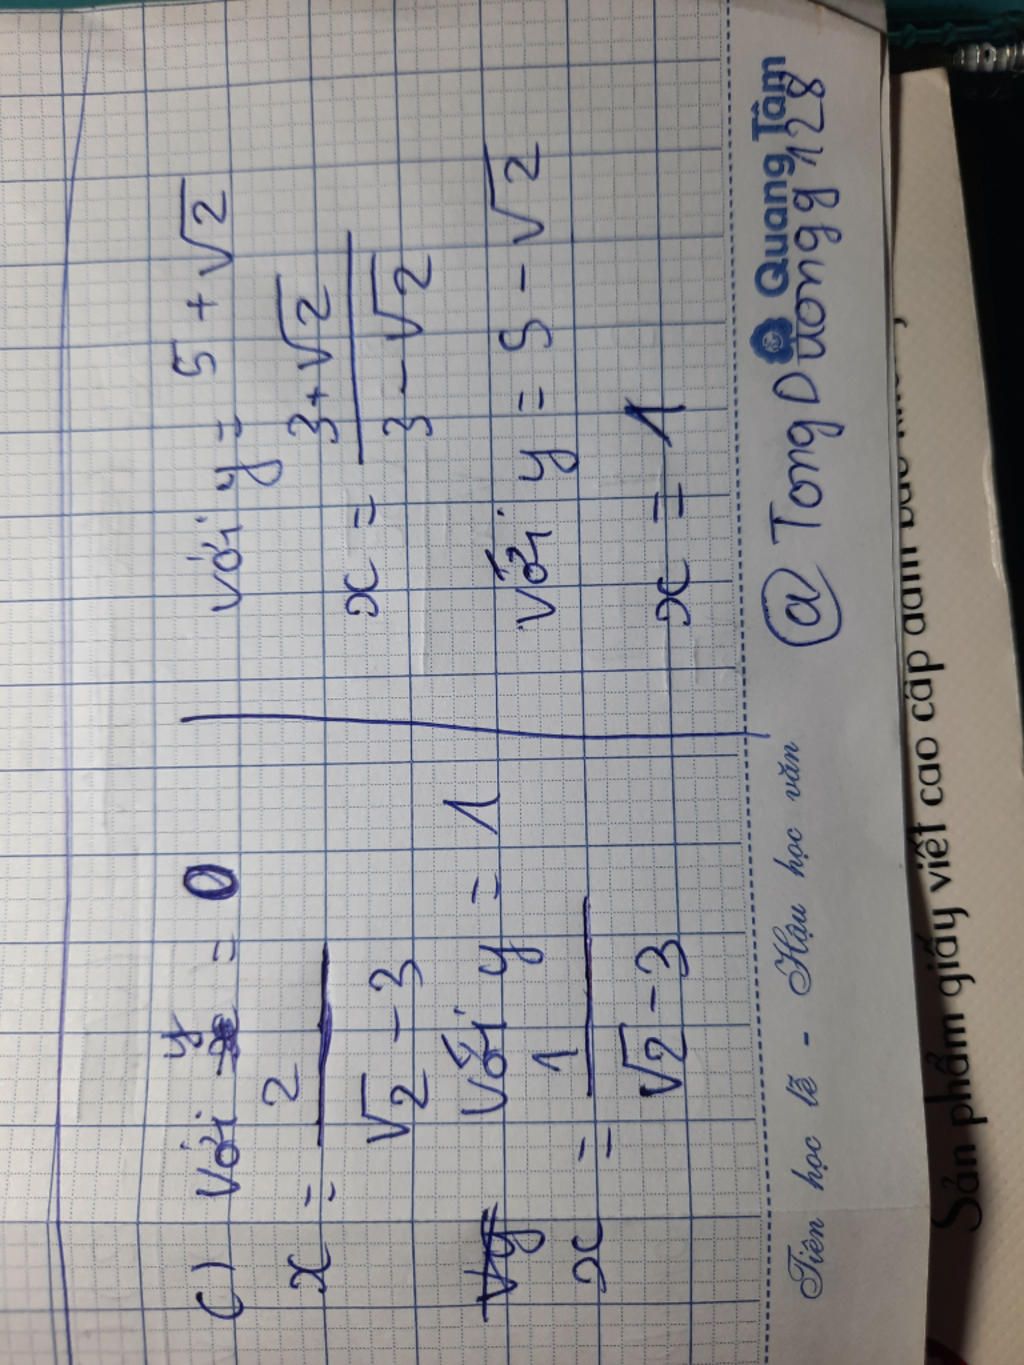 c) với y = 0
x = 2 / √2 - 3
Vy Với y = 1
x = 1 / √2 - 3
với y = 5 + √2
x = 3 + √2 / 3 - √2
với y = 5 - √2
x = 1
Tiên học lễ - Hậu học văn
@ TongDuongg128
Quang Tâm
Sản phẩm giấy viết cao cấp đảm bảo